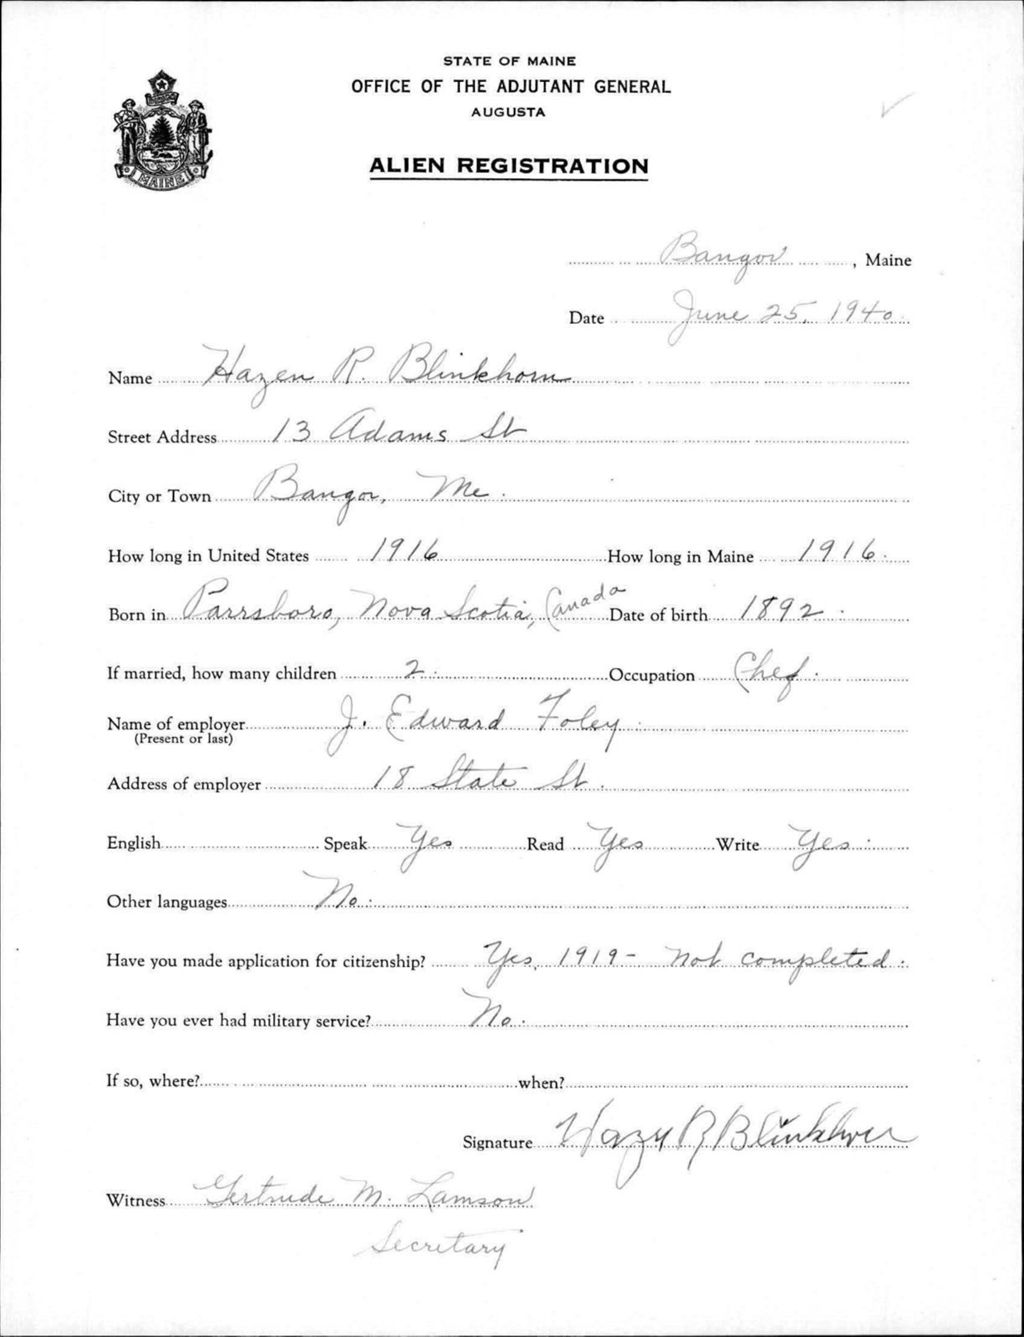 STATE OF MAINE
OFFICE OF THE ADJUTANT GENERAL
AUGUSTA
ALIEN REGISTRATION
MAINE
Bangor, Maine
Date June 25, 1940
Name Hazen R. Blinkhorn
Street Address 13 Adams St
City or Town Bangor, Me.
How long in United States 1916 How long in Maine 1916.
Born in Parrsboro, Nova Scotia, Canada Date of birth 1892.
If married, how many children 2. Occupation Chef.
Name of employer J. Edward Foley
(Present or last)
Address of employer 18 State St.
English Speak Yes Read Yes Write Yes.
Other languages No.
Have you made application for citizenship? Yes, 1919 - not completed.
Have you ever had military service? No.
If so, where? when?
Signature Hazen R Blinkhorn
Witness Gertrude M. Lamson
Secretary